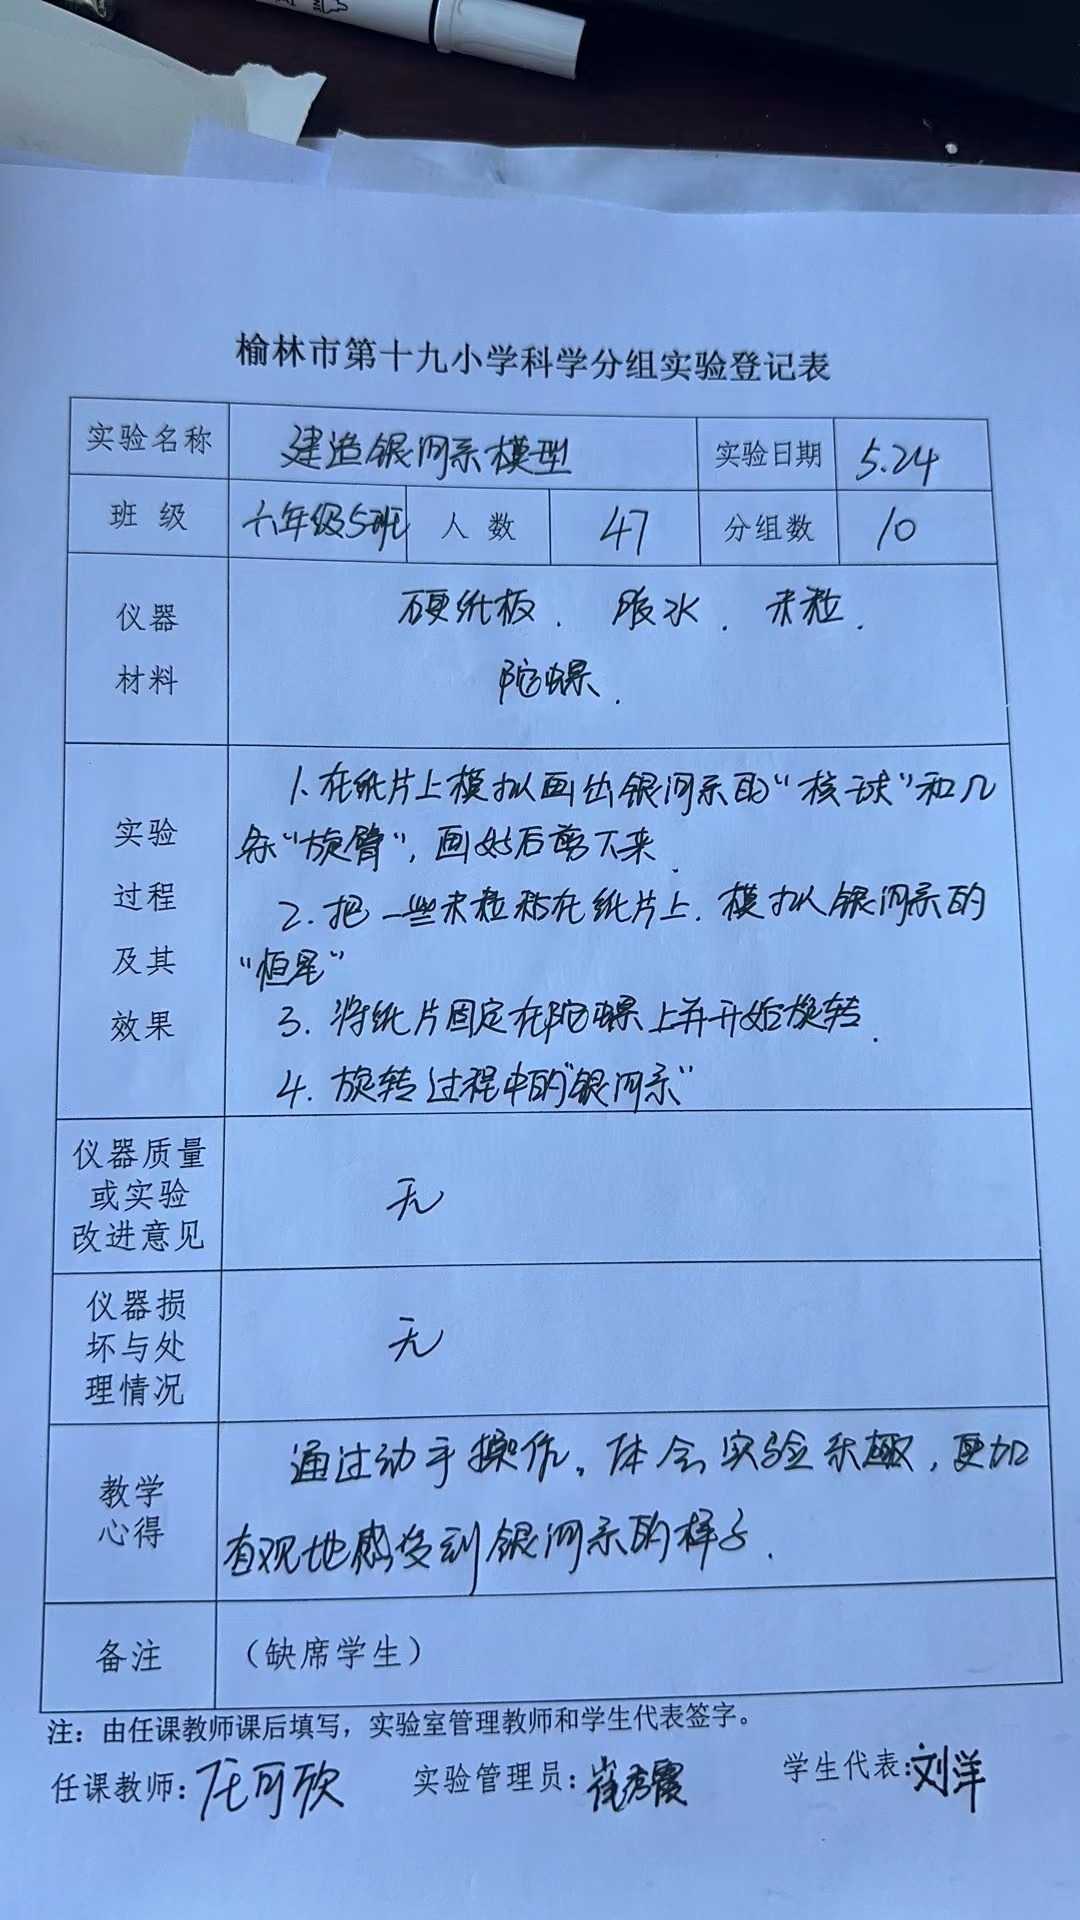 榆林市第十九小学科学分组实验登记表
实验名称 建造银河系模型 实验日期 5.24
班级 六年级5班 人数 47 分组数 10
仪器 硬纸板. 胶水. 米粒.
材料 陀螺.
1.在纸片上模拟画出银河系的“核球”和几
实验 条“旋臂”,画好后剪下来.
过程 2.把一些米粒粘在纸片上.模拟银河系的
及其 “恒星”
效果 3.将纸片固定在陀螺上并开始旋转.
4.旋转过程中的“银河系”
仪器质量
或实验 无
改进意见
仪器损
坏与处 无
理情况
通过动手操作。体会实验乐趣,更加
教学
心得
直观地感受到银河系的样子.
备注 (缺席学生)
注:由任课教师课后填写,实验室管理教师和学生代表签字。
任课教师: 任可欣 实验管理员: 学生代表:刘洋